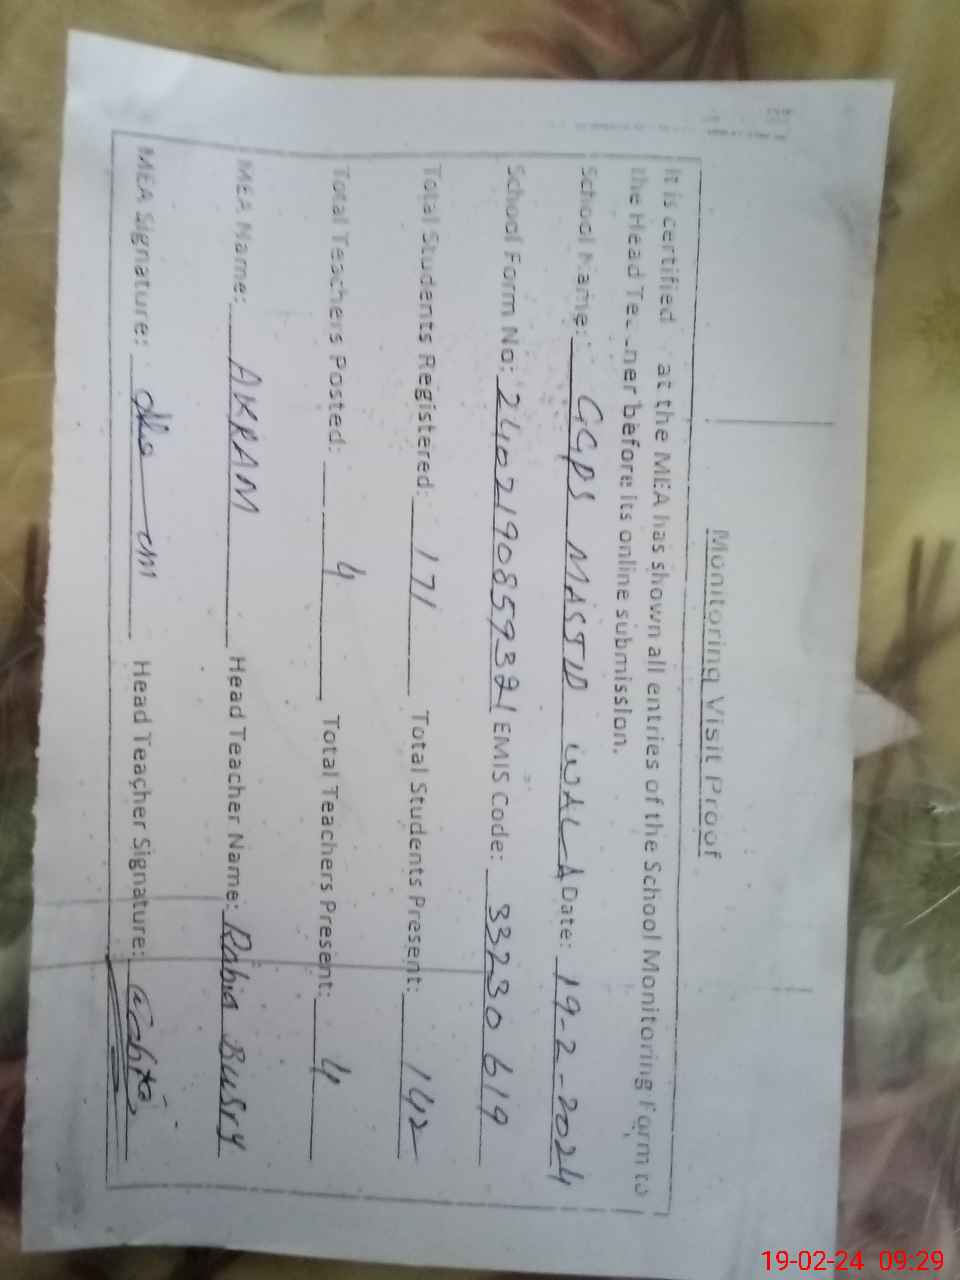 Monitoring Visit Proof
It is certified at the MEA has shown all entries of the School Monitoring Form to
the Head Te ner before its online submission.
School Name: GGPS MASJID WALA Date: 19-2-2024
School Form No: 2402190859321 EMIS Code: 33230619
Total Students Registered: 171 Total Students Present: 142
Total Teachers Posted: 4 Total Teachers Present: 4
MEA Name: AKRAM Head Teacher Name: Rabia Busry
MEA Signature: Head Teacher Signature:
19-02-24 09:29